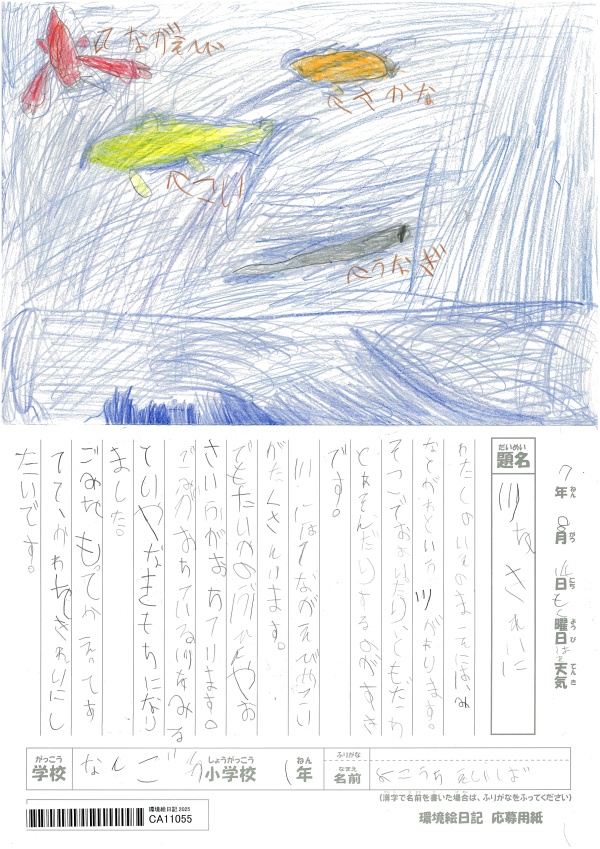 てながえび
さかな
こい
うなぎ
7年8月14日もく曜日は天気
ねん がつ にち ようび てんき
だいめい
題名
川をきれいに
わたしのいえのまえには、み
なとがわという川があります。
そこでおよいだり、ともだち
とあそんだりするのがすき
です。
川にはてながえびやこい
がたくさんいます。
でもたいふのひや、お
さいふがおちています。
ごみがおちている川をみる
といやなきもちになり
ました。
ごみをもってかえってす
てて、かわをきれいにし
たいです。
がっこう
学校
なんごう
しょうがっこう
小学校
1年
ねん
ふりがな
なまえ
名前
(漢字で名前を書いた場合は、ふりがなをふってください)
環境絵日記 2025
CA11055
環境絵日記 応募用紙